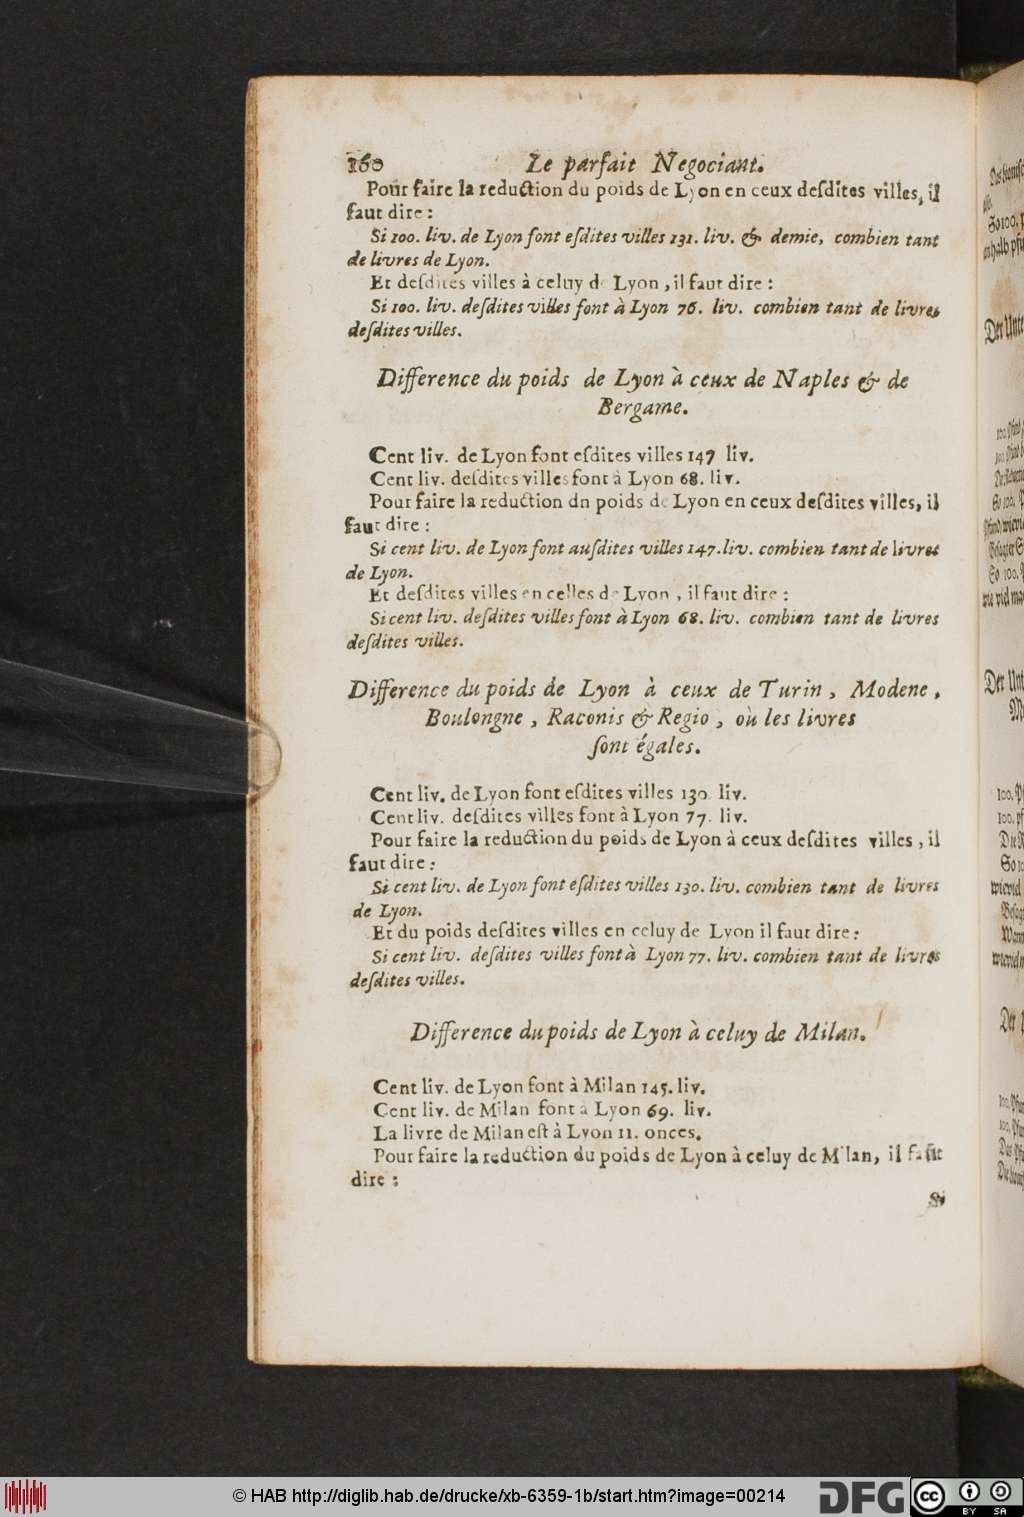 160 Le parfait Negociant.
Pour faire la reduction du poids de Lyon en ceux deſdites villes, il
faut dire :
Si 100. liv. de Lyon font eſdites villes 131. liv. & demie, combien tant
de livres de Lyon.
Et deſdites villes à celuy de Lyon, il faut dire :
Si 100. liv. deſdites villes font à Lyon 76. liv. combien tant de livres
deſdites villes.
Difference du poids de Lyon à ceux de Naples & de
Bergame.
Cent liv. de Lyon font eſdites villes 147 liv.
Cent liv. deſdites villes font à Lyon 68. liv.
Pour faire la reduction dn poids de Lyon en ceux deſdites villes, il
faut dire :
Si cent liv. de Lyon font auſdites villes 147. liv. combien tant de livres
de Lyon.
Et deſdites villes en celles de Lyon, il faut dire :
Si cent liv. deſdites villes font à Lyon 68. liv. combien tant de livres
deſdites villes.
Difference du poids de Lyon à ceux de Turin, Modene,
Boulongne, Raconis & Regio, où les livres
ſont égales.
Cent liv. de Lyon font eſdites villes 130. liv.
Cent liv. deſdites villes font à Lyon 77. liv.
Pour faire la reduction du poids de Lyon à ceux deſdites villes, il
faut dire :
Si cent liv. de Lyon font eſdites villes 130. liv. combien tant de livres
de Lyon.
Et du poids deſdites villes en celuy de Lyon il faut dire :
Si cent liv. deſdites villes font à Lyon 77. liv. combien tant de livres
deſdites villes.
Difference du poids de Lyon à celuy de Milan.
Cent liv. de Lyon font à Milan 145. liv.
Cent liv. de Milan font à Lyon 69. liv.
La livre de Milan eſt à Lyon 11. onces.
Pour faire la reduction du poids de Lyon à celuy de Milan, il faut
dire :
Si
© HAB http://diglib.hab.de/drucke/xb-6359-1b/start.htm?image=00214
DFG
cc BY SA